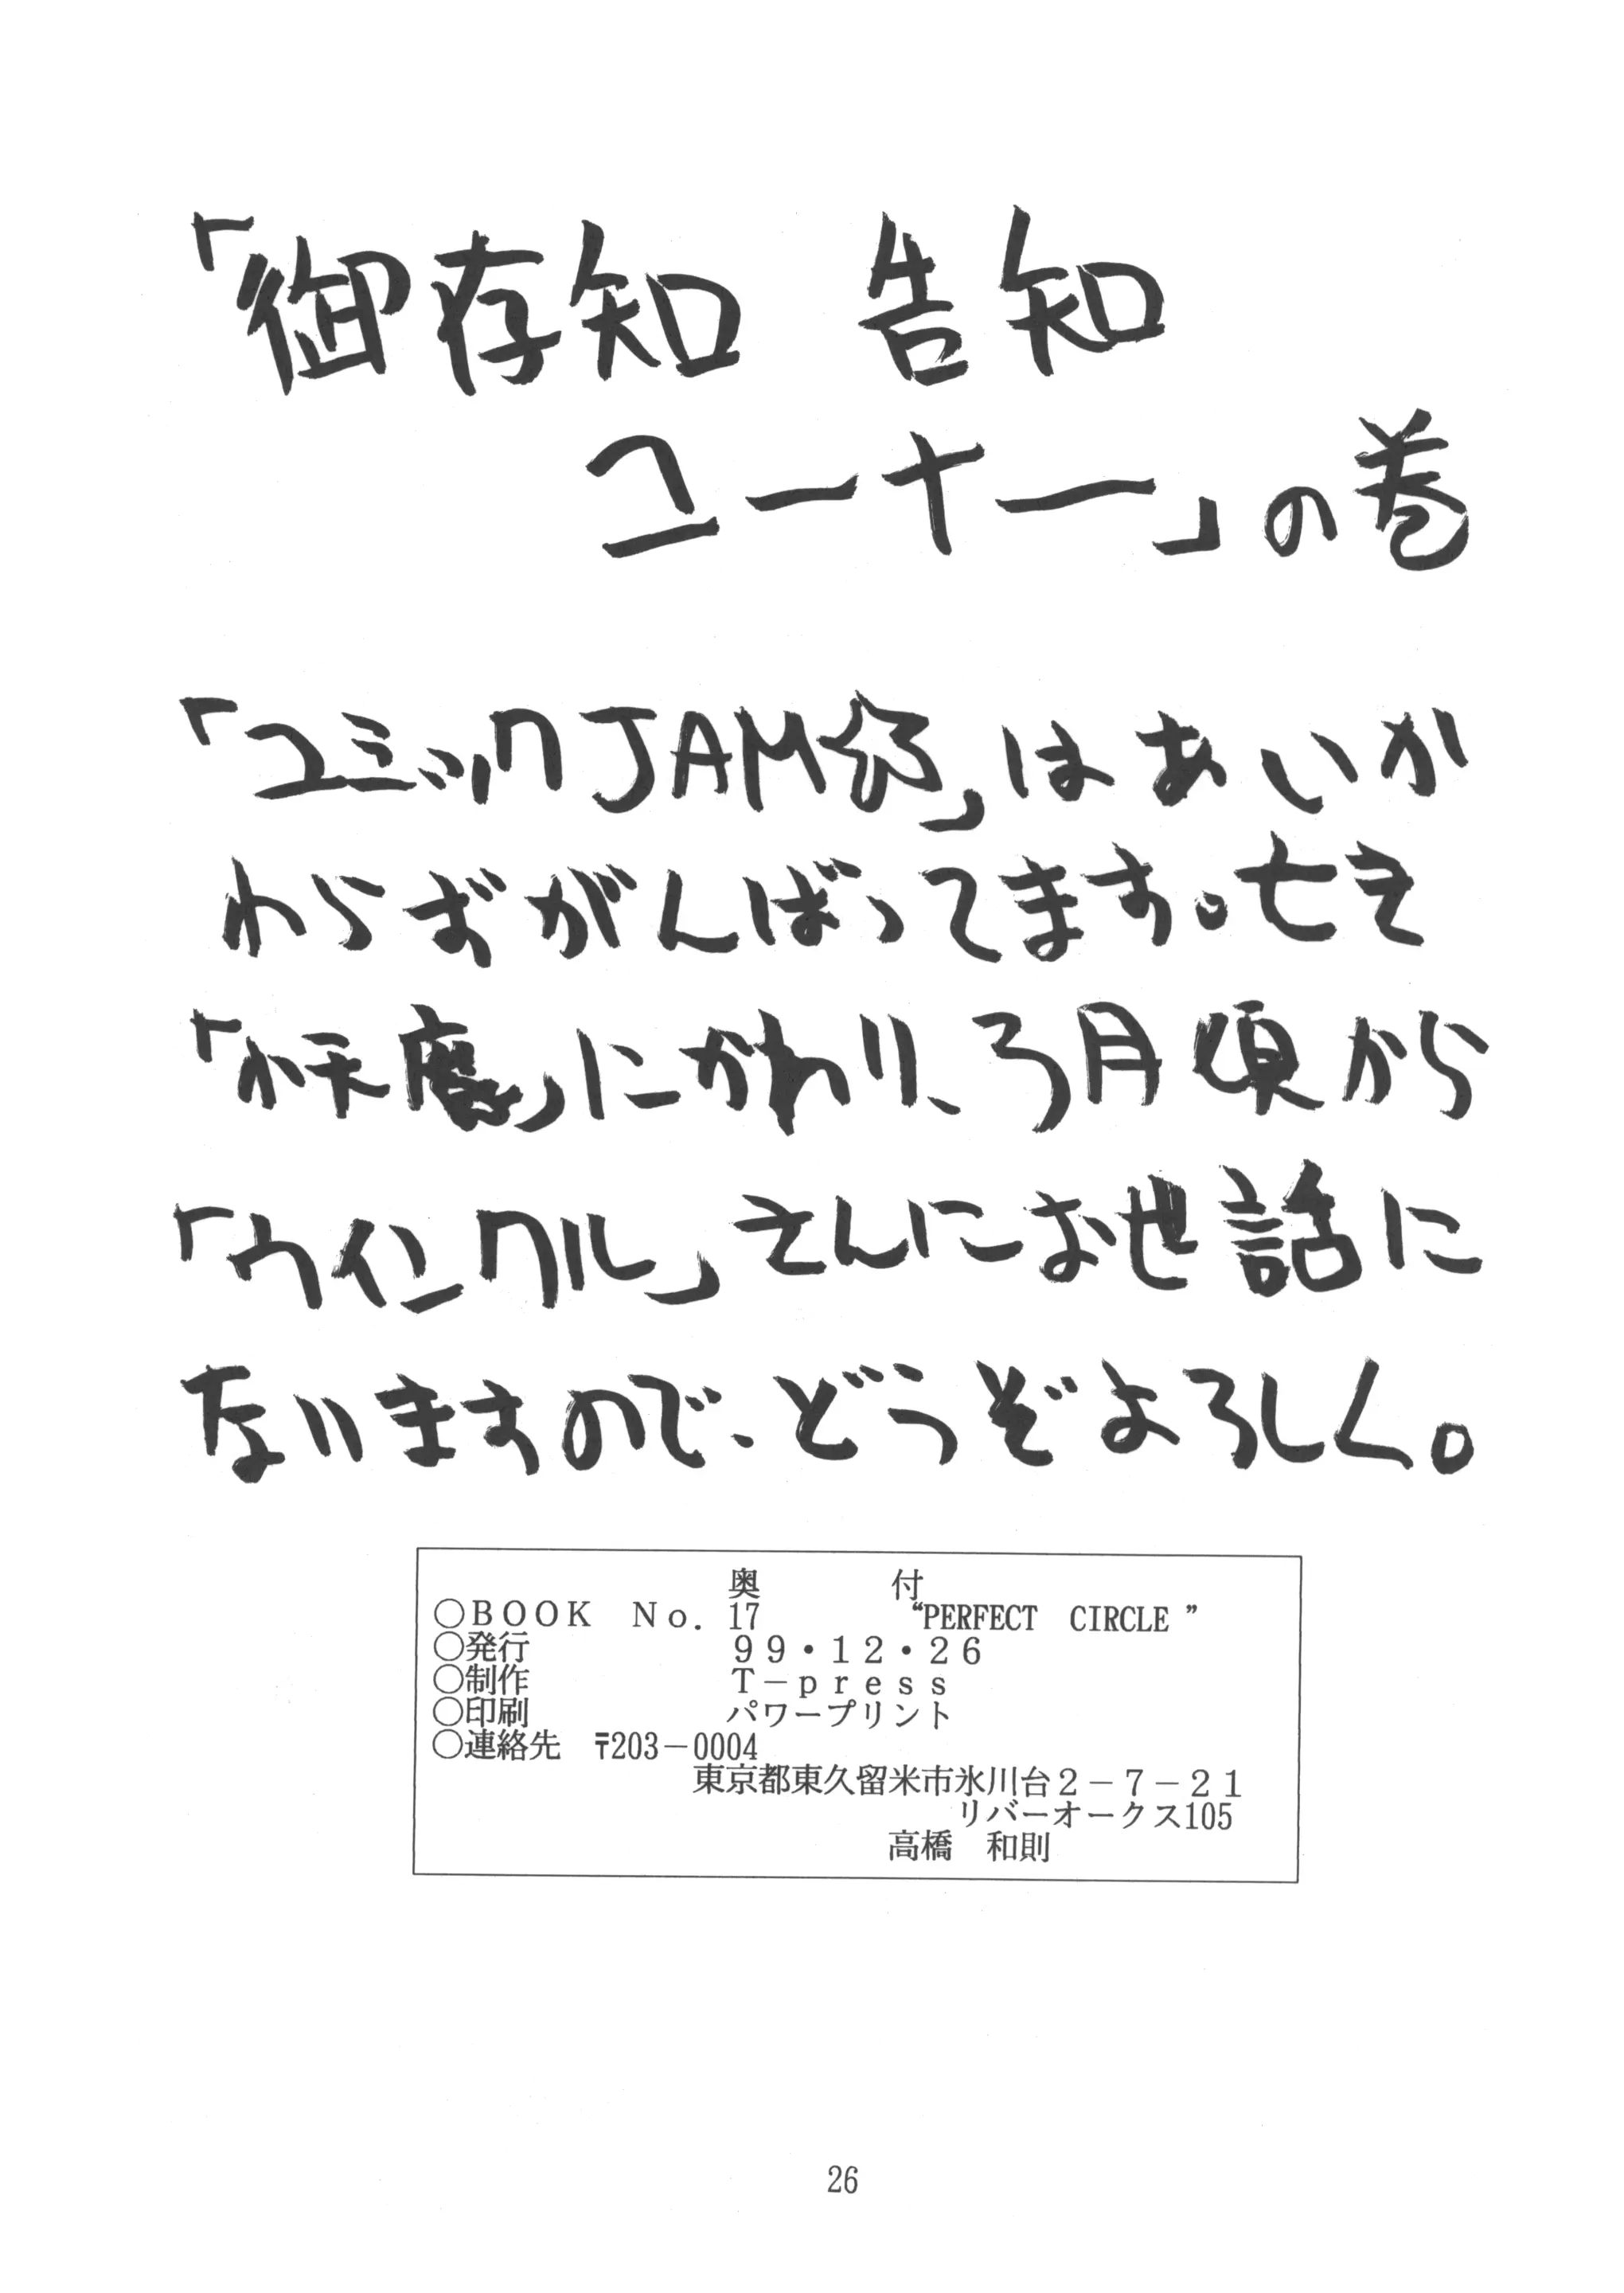 「御存知 告知
コーナー」の巻
「コミックJAM�」はあいか
わらずがんばってます。亡き
「�」にかわり、3月頃から
「ウインクル」さんにお世話に
なりますので、どうぞよろしく。
奥　　　付
○BOOK　No. 17　“PERFECT　CIRCLE”
○発行　99・12・26
○制作　T－press
○印刷　パワープリント
○連絡先　〒203－0004
東京都東久留米市氷川台2－7－21
リバーオークス105
高橋　和則
26